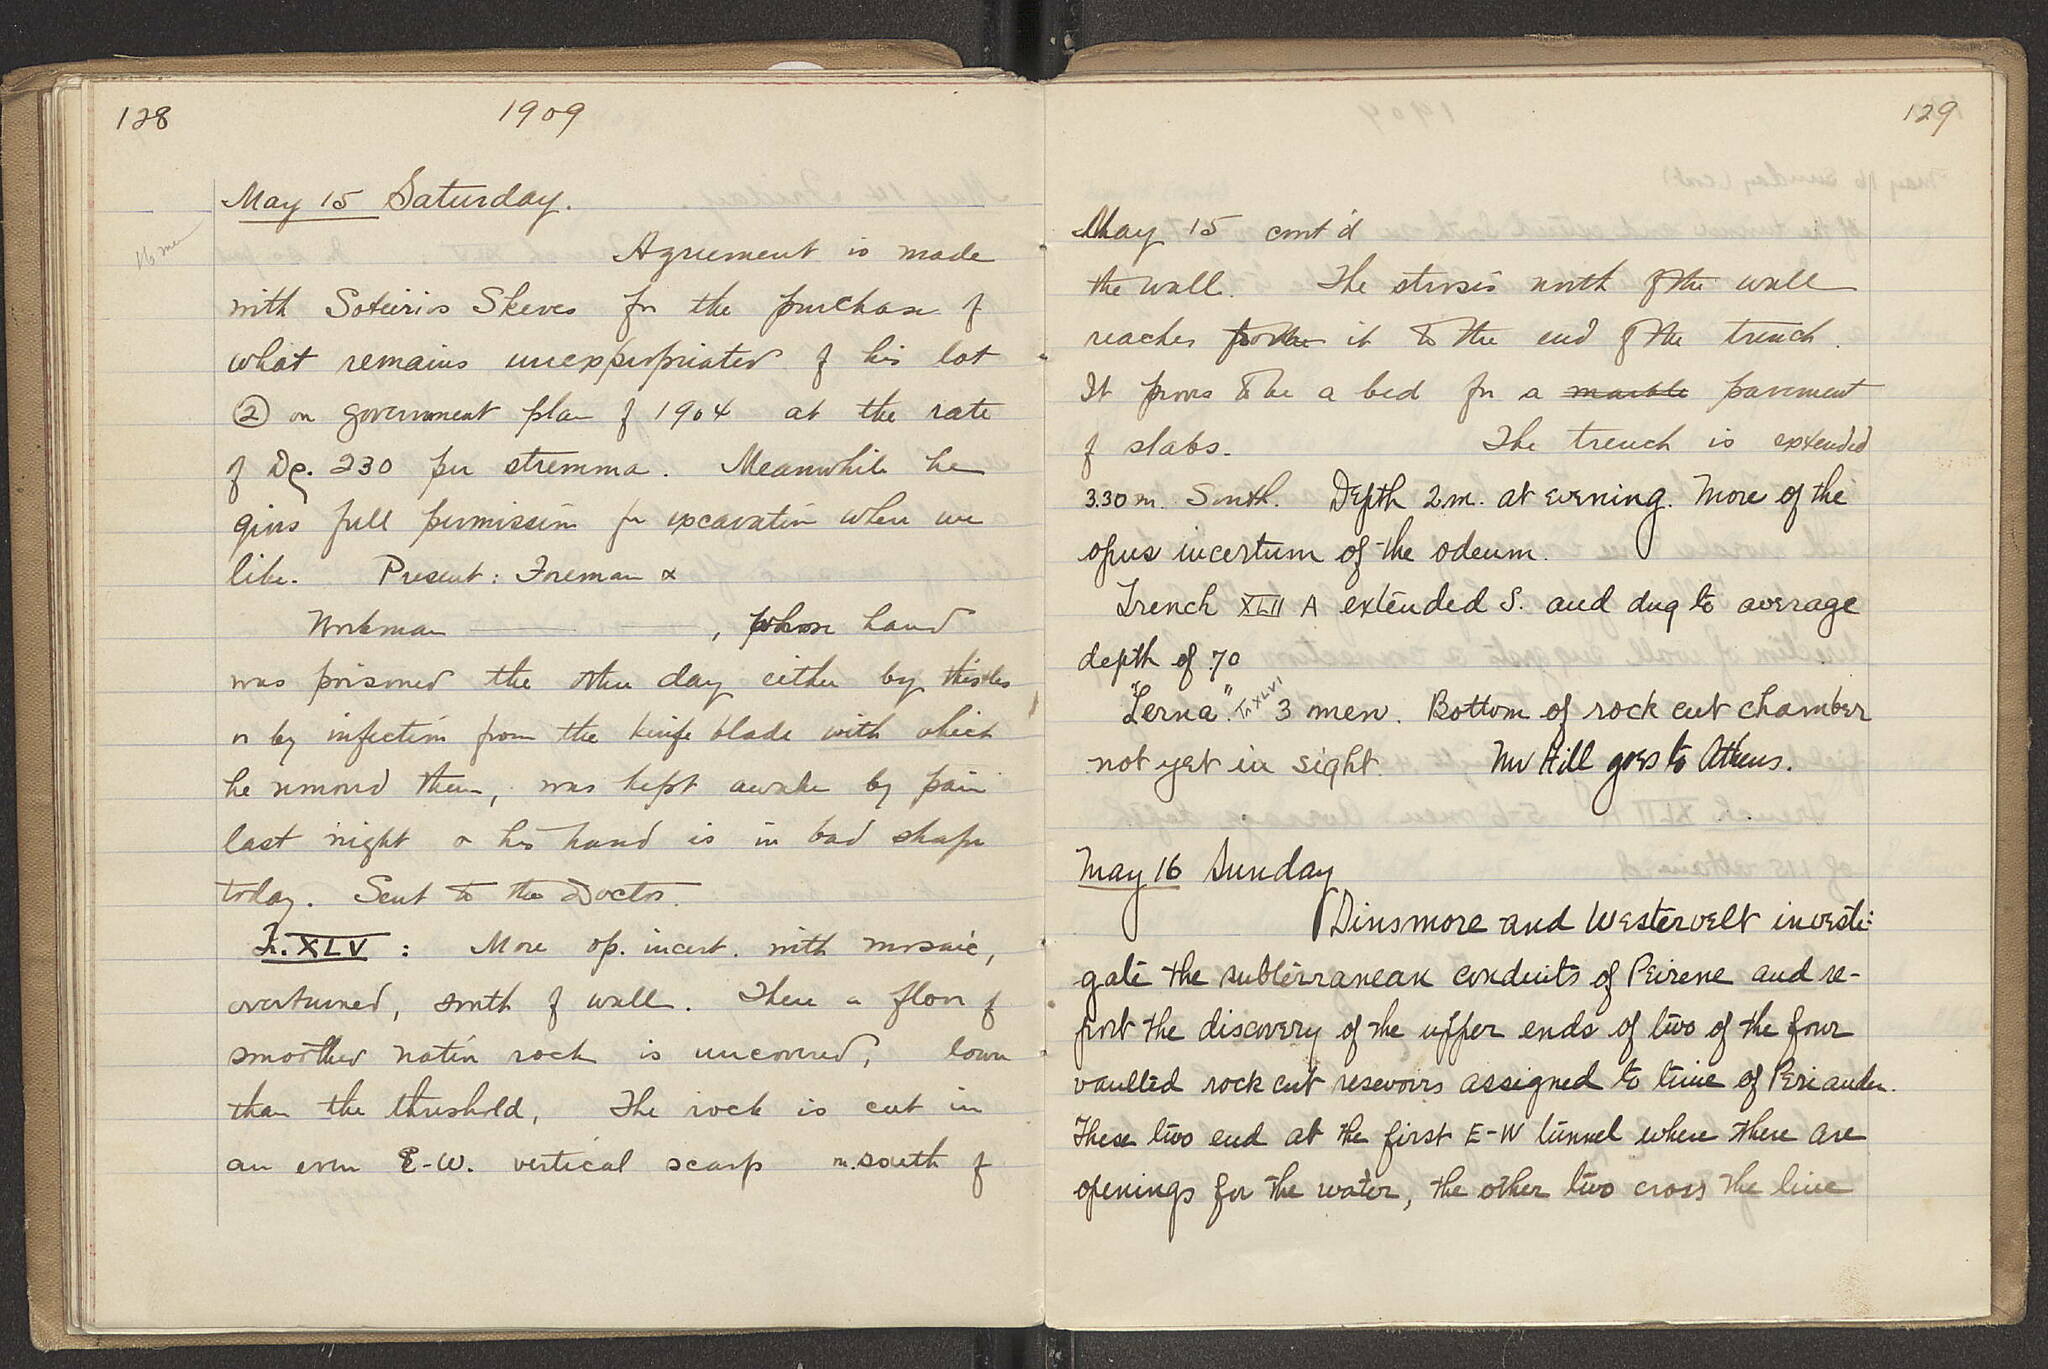 128
1909
May 15 Saturday.
16 men
Agreement is made
with Soteirios Skeves for the purchase of
what remains unexpropriated of his lot
② on government plan of 1904 at the rate
of Dr. 230 per stremma. Meanwhile he
gives full permission for excavation when we
like. Present: Foreman &
Workman ——— ———, whose hand
was poisoned the other day either by thistles
or by infection from the knife blade with which
he removed them, was kept awake by pain
last night & his hand is in bad shape
today. Sent to the Doctor.
Tr. XLV: More op. incert. with mosaic,
overturned, south of wall. There a floor of
smoothed native rock is uncovered, lower
than the threshold. The rock is cut in
an even E-W. vertical scarp m. south of
129
May 15 cont'd
the wall. The strosis north of the wall
reaches from it to the end of the trench.
It proves to be a bed for a marble pavement
of slabs. The trench is extended
3.30 m. South. Depth 2 m. at evening. More of the
opus incertum of the odeum.
Trench XLII A extended S. and dug to average
depth of .70
"Lerna". Tr XLVI 3 men. Bottom of rock cut chamber
not yet in sight. Mr Hill goes to Athens.
May 16 Sunday
Dinsmore and Westervelt investi:
gate the subterranean conduits of Peirene and re-
port the discovery of the upper ends of two of the four
vaulted rock cut resevoirs assigned to time of Periander.
These two end at the first E-W tunnel where there are
openings for the water, the other two cross the line